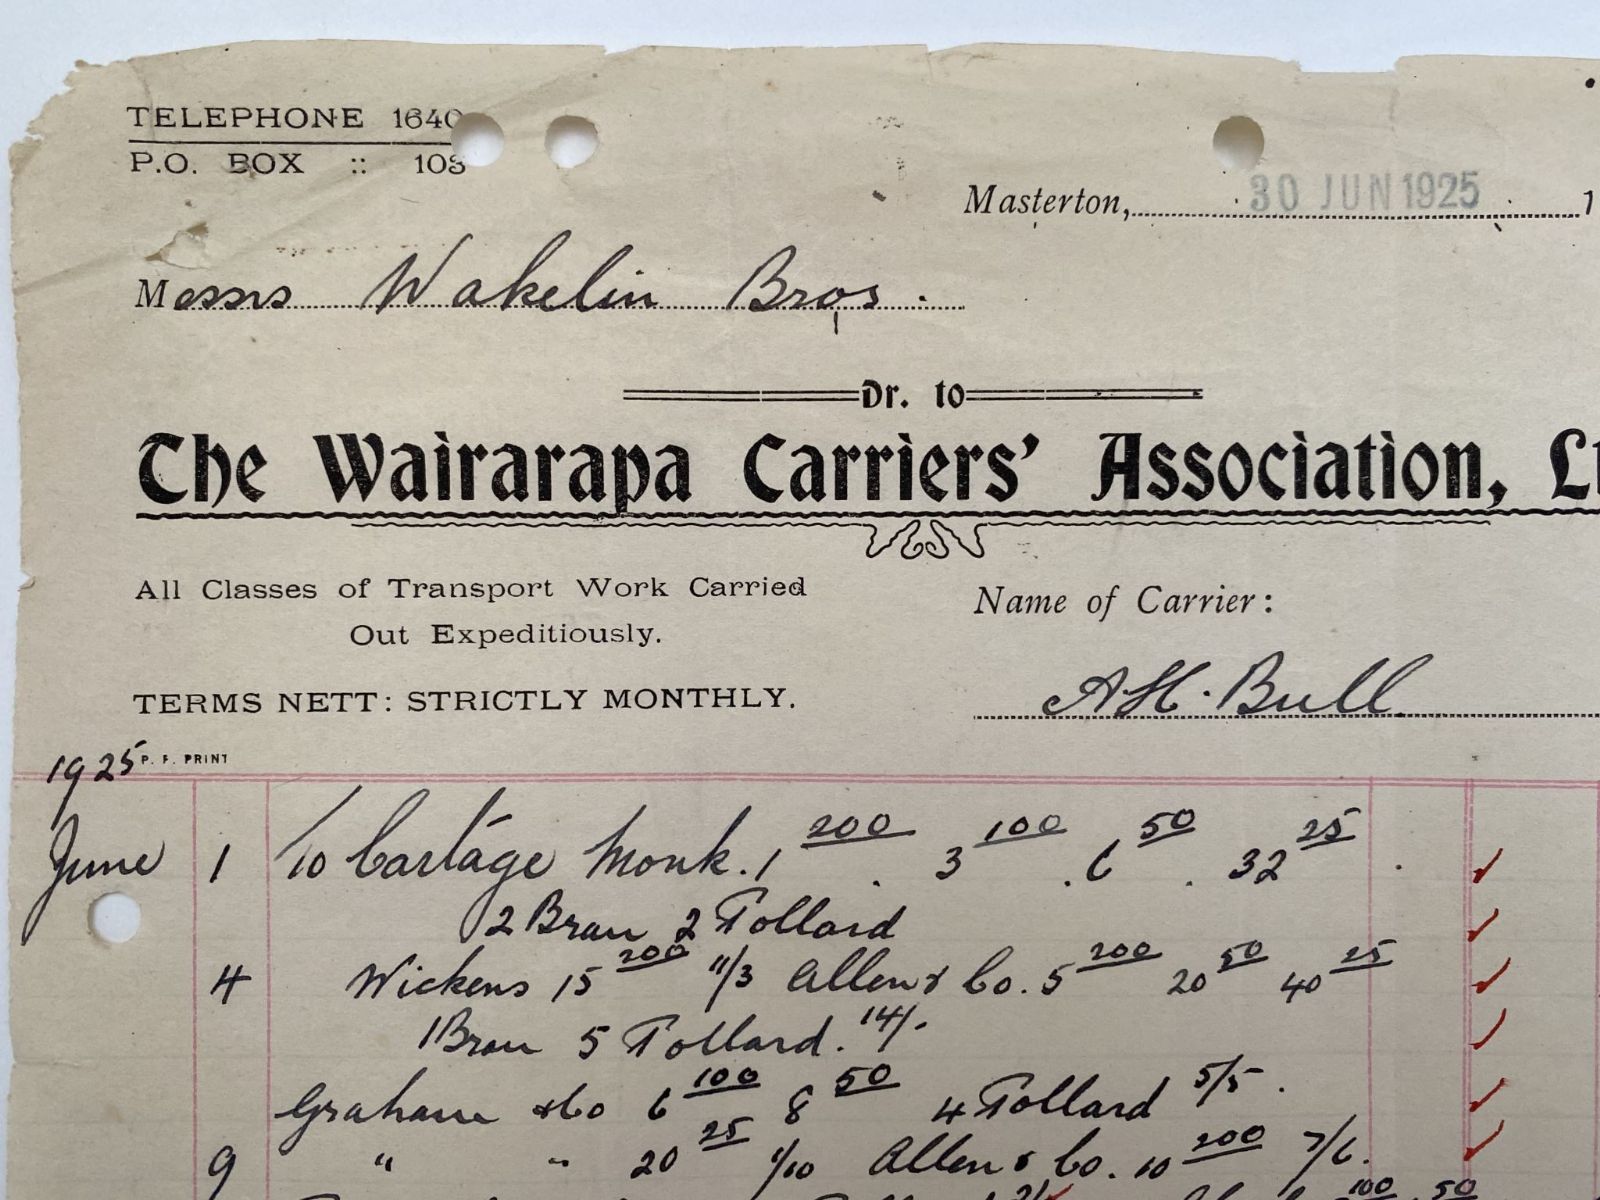 TELEPHONE 1640
P.O. BOX :: 103
Masterton, 30 JUN 1925 1
Messrs Wakelin Bros.
Dr. to
The Wairarapa Carriers' Association, Lt
All Classes of Transport Work Carried
Out Expeditiously.
Name of Carrier:
TERMS NETT: STRICTLY MONTHLY.
A H. Bull
1925 P. F. PRINT
June 1 To Cartage Monk. 1 200 . 3 100 . 6 50 . 32 25 .
2 Bran 2 Pollard
4 Wickens 15 200 11/3 Allen & Co. 5 200 20 50 40 25
1 Bran 5 Pollard. 14/.
Graham & Co 6 100 8 50 4 Pollard 5/5.
9 " " 20 25 1/10 Allen & Co. 10 200 7/6.
100 50